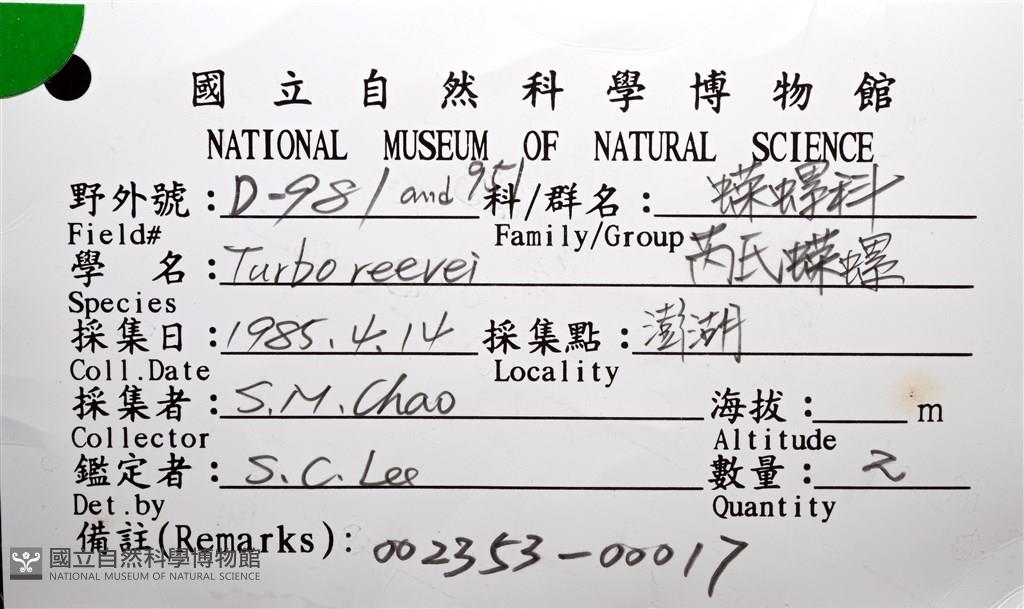 國立自然科學博物館
NATIONAL MUSEUM OF NATURAL SCIENCE
野外號：D-981 and 951 科/群名：蠑螺科
Field# Family/Group
學 名：Turbo reevei 芮氏蠑螺
Species
採集日：1985.4.14 採集點：澎湖
Coll.Date Locality
採集者：S.M.Chao 海拔： m
Collector Altitude
鑑定者：S.C.Lee 數量：2
Det.by Quantity
備註(Remarks)：002353-00017
國立自然科學博物館
NATIONAL MUSEUM OF NATURAL SCIENCE